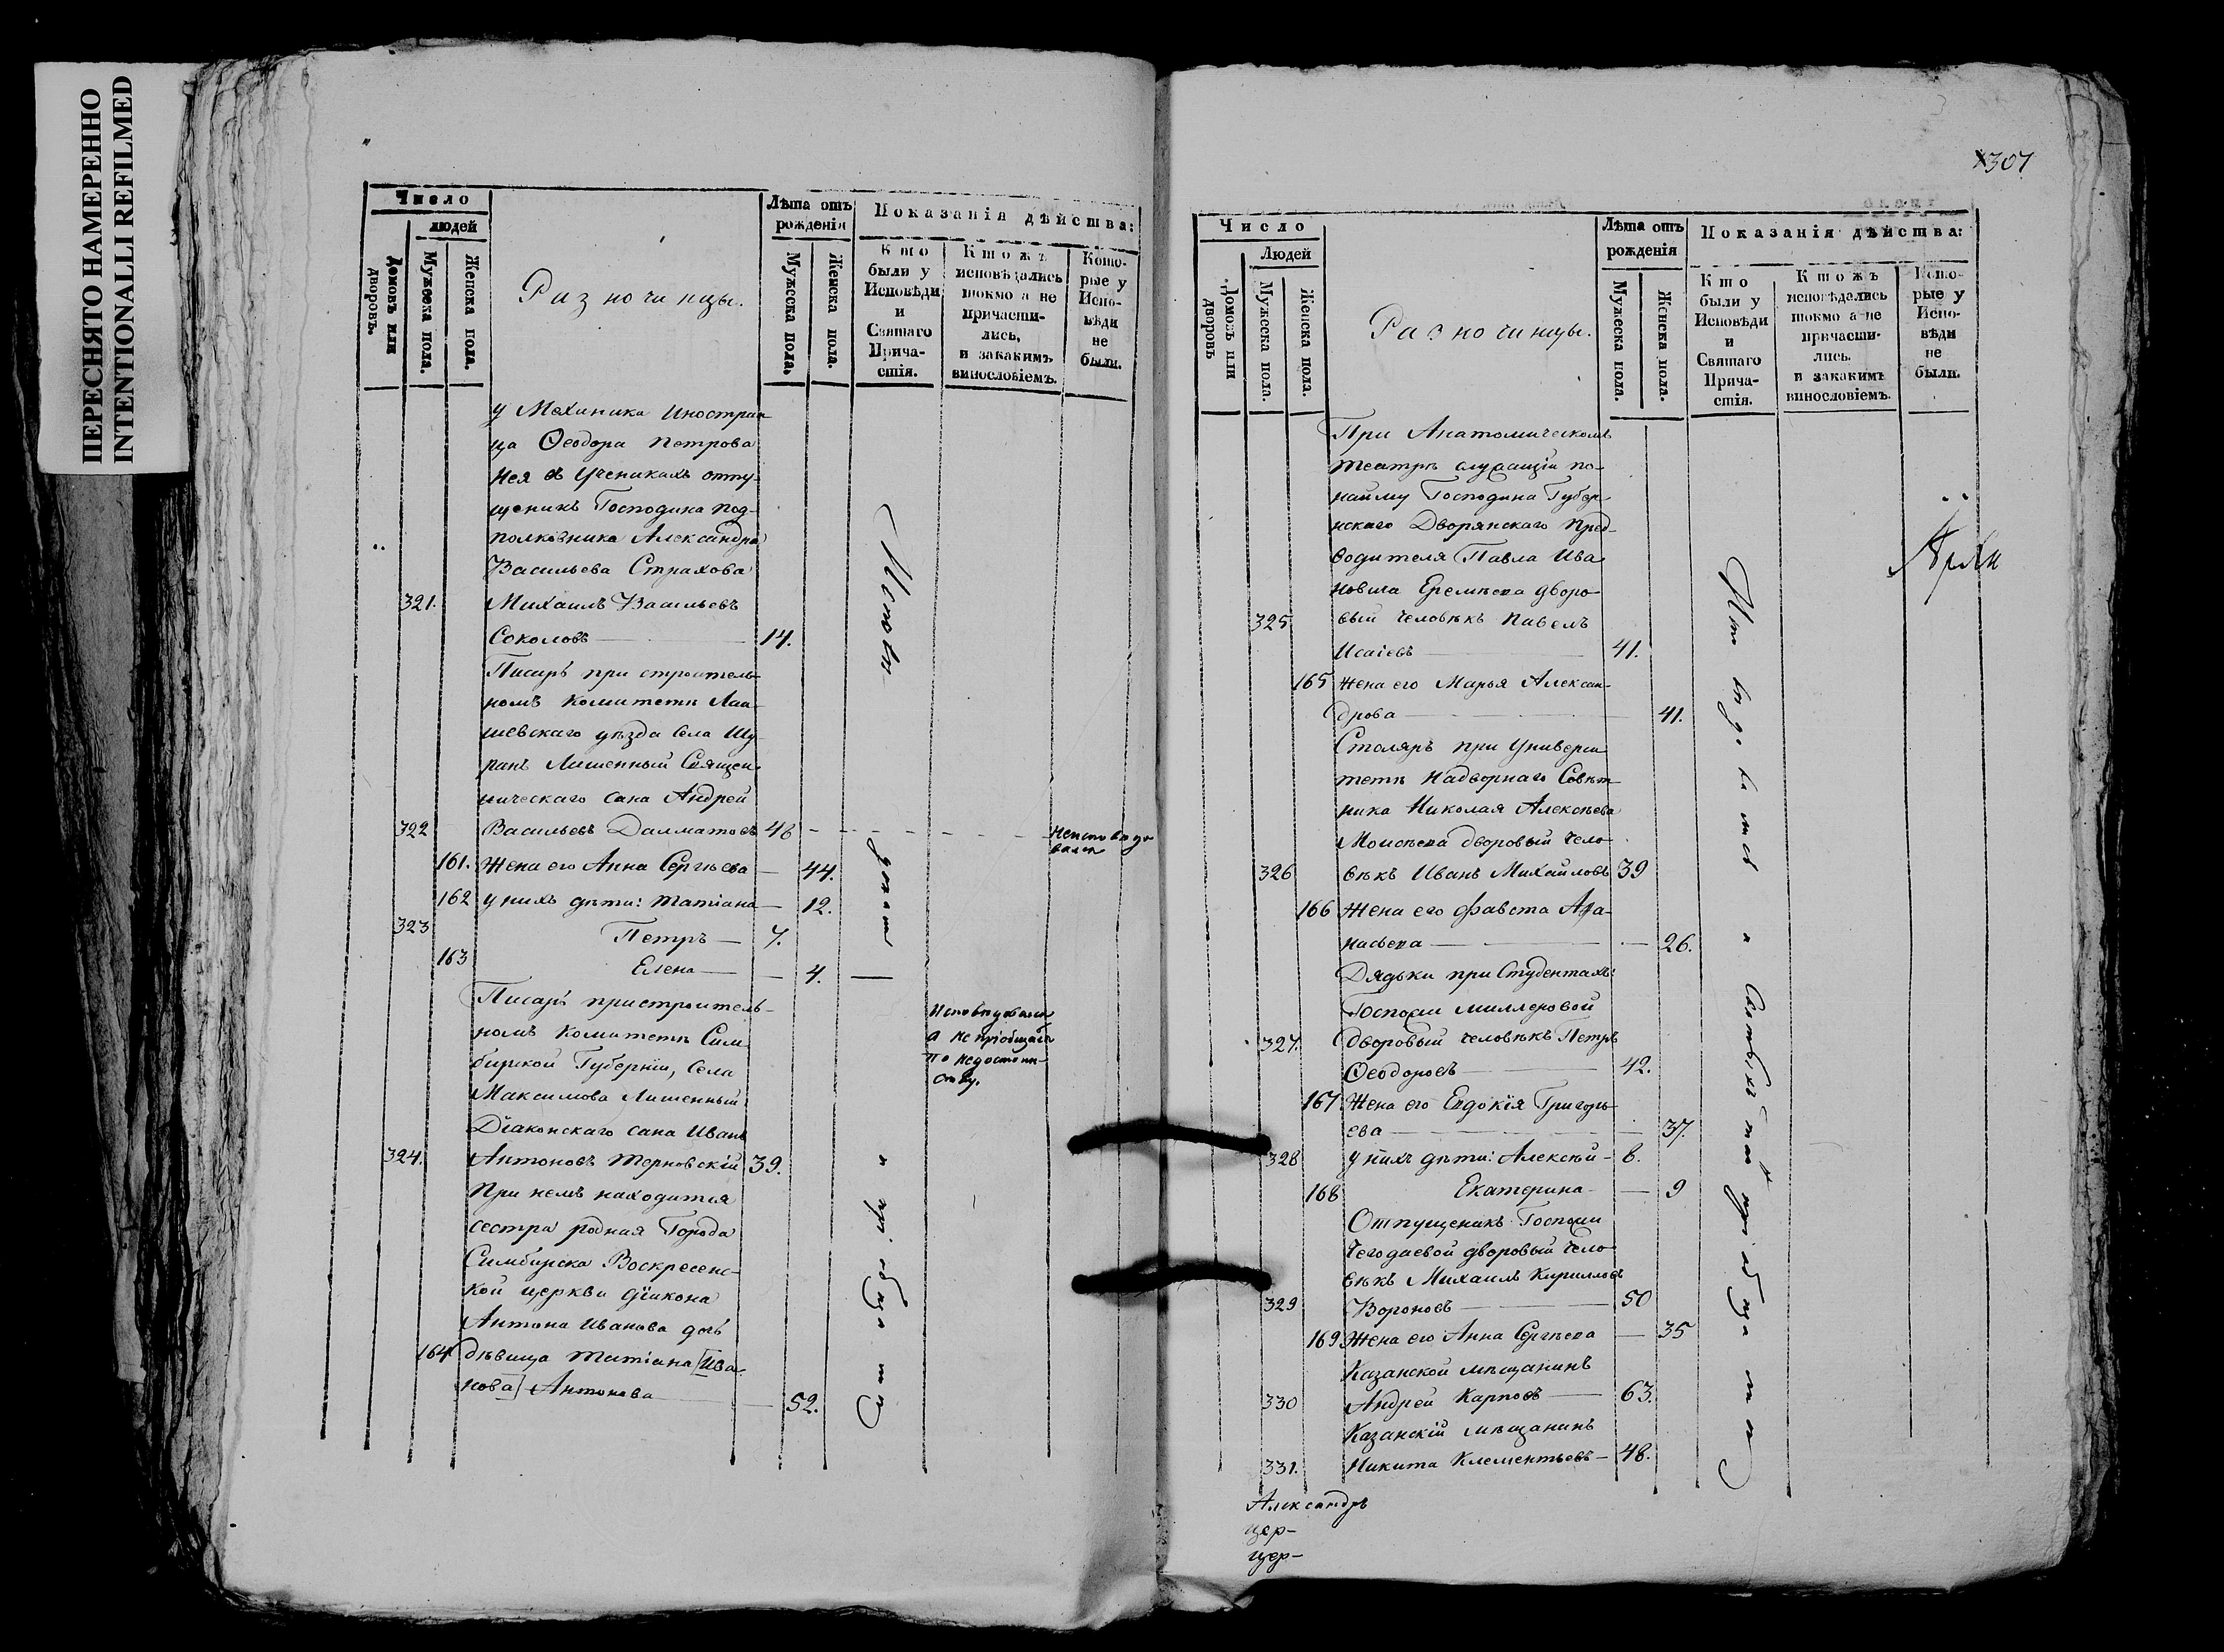 ПЕРЕСНЯТО НАМЕРЕННО
INTENTIONALLI REFILMED
Число
людей
Домовъ или дворовъ.
Мужеска пола.
Женска пола.
Разночинцы.
Лѣта отъ рожденія
Мужеска пола.
Женска пола.
Показанія дѣйства:
Кто были у Исповѣди и Святаго Прича-стія.
Ктожъ исповѣдались токмо а не причасти-лись, и закакимъ винословіемъ.
Кото-рые у Испо-вѣди не были.
у Механика Иностран
ца Ѳеодора Петрова
Нея въ Ученикахъ отпу-
щеникъ Господина под-
полковника Александра
Васильева Страхова
321. Михаилъ Васильевъ
Соколовъ — 14.
Писарь при строитель-
номъ Комитетѣ Лаи-
шевскаго уѣзда Села Шу-
ранъ Лишенный Священ-
ническаго сана Андрей
322 Васильевъ Далматовъ 48 - - - - - - - Неисповѣдо
вался
161. Жена его Анна Сергѣева — 44.
162 у нихъ дѣти: Татіана — 12.
323 Петръ — 7.
163 Елена — 4.
Писарь пристроитель-
номъ Комитетѣ Сим-
бирской Губерніи, Села
Максимова Лишенный
Діаконскаго сана Иванъ
324. Антоновъ Терновскій 39.
Исповѣдовался
а не пріобщался
по недостоин-
ству.
При немъ находится
сестра родная Города
Симбирска Воскресенс-
кой церкви діакона
Антона Иванова дочь
164 дѣвица Татіана [Ива-
нова] Антонова — 52.
Исповѣдует и пріобщатъ
307
Число
Людей
Домовъ или дворовъ
Мужеска пола.
Женска пола.
Разночинцы.
Лѣта отъ рожденія
Мужеска пола.
Женска пола.
Показанія дѣйства:
Кто были у Исповѣди и Святаго Прича-стія.
Ктожъ исповѣдались токмо а не причасти-лись. и закакимъ винословіемъ.
Кото-рые у Испо-вѣди не были.
При Анатомическомъ
театрѣ служащій по-
найму Господина Губер-
нскаго Дворянскаго Пред-
водителя Павла Ива
новича Еремѣева дворо-
325 вый человѣкъ Павелъ
Исаіевъ — 41.
165 Жена его Марья Алексан-
дрова — 41.
Столяръ при Универси
тетѣ Надворнаго Совѣт-
ника Николая Алексѣева
Моисѣева дворовый чело-
326 вѣкъ Иванъ Михайловъ 39
166 Жена его Фавста Афа-
насьева — 26.
Дядьки при Студентахъ:
Госпожи Миллеровой
327. дворовый человѣкъ Петръ
Ѳеодоровъ — 42.
167 Жена его Евдокія Григорь-
ева — 37.
328 у нихъ дѣти: Алексѣй - 8.
168 Екатерина — 9
Отпущеникъ Госпожи
Чегодаевой дворовый чело-
вѣкъ Михаилъ Кирилловъ
329 Вороновъ — 50
169 Жена его Анна Сергѣева — 35
Казанской мѣщанинъ
330 Андрей Карповъ — 63.
Казанскій мѣщанинъ
331. Никита Клементьевъ — 48.
Александръ
цер-
цер-